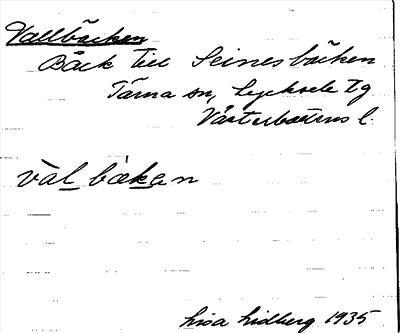 Vallbäcken
Bäck till Seinesbäcken
Tärna sn, Lycksele tg
Västerbottens l.
val bäkan
Lisa Lidberg 1935